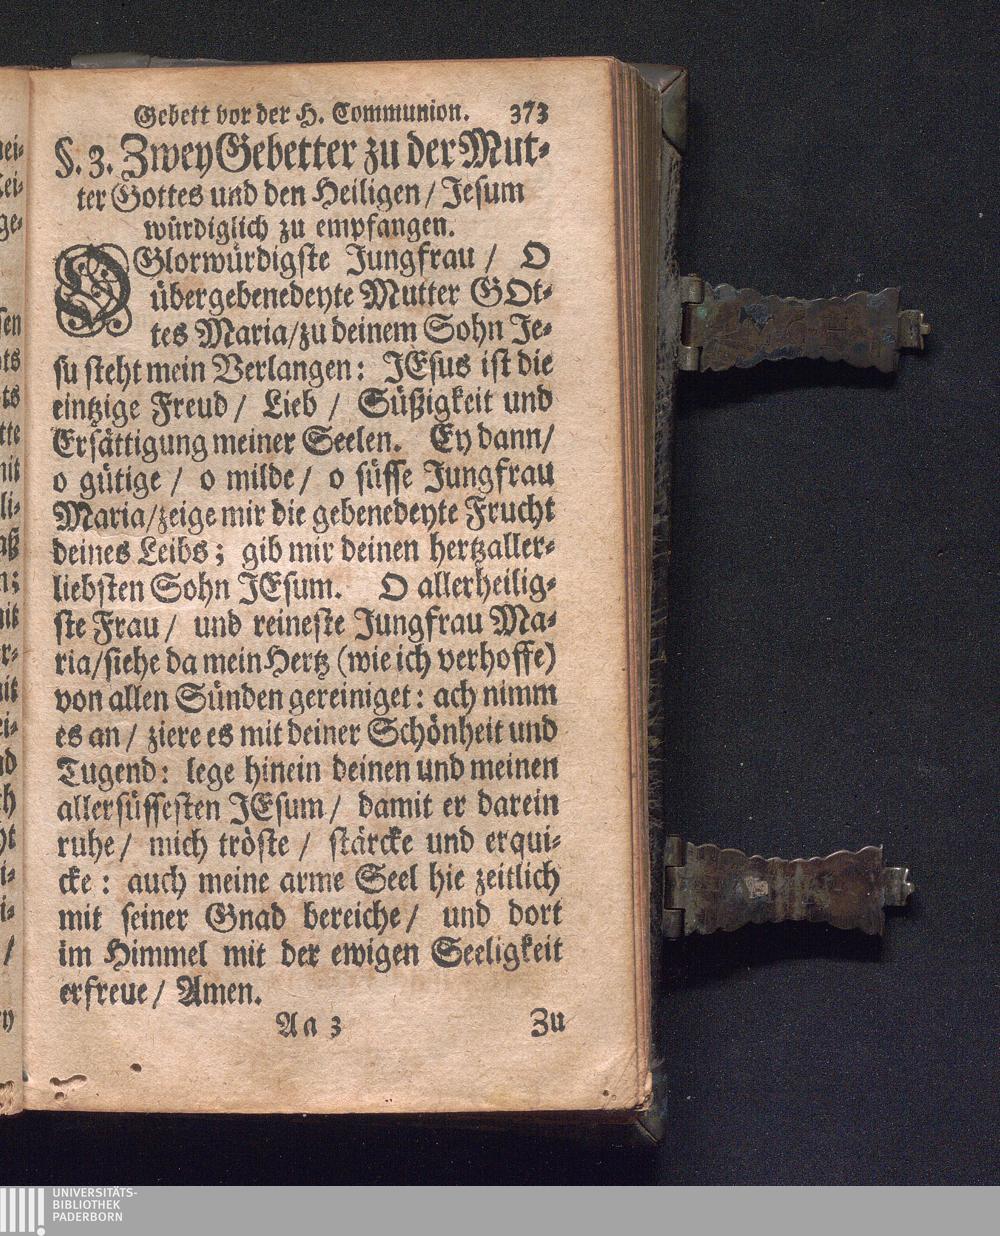 Gebett vor der H. Communion. 373
§. 3. Zwey Gebetter zu der Mut-
ter Gottes und den Heiligen / Jesum
würdiglich zu empfangen.
O Glorwürdigste Jungfrau / O
übergebenedeyte Mutter GOt-
tes Maria/zu deinem Sohn Je-
su steht mein Verlangen: JEsus ist die
eintzige Freud / Lieb / Süßigkeit und
Ersättigung meiner Seelen. Ey dann/
o gütige / o milde / o süsse Jungfrau
Maria/zeige mir die gebenedeyte Frucht
deines Leibs; gib mir deinen hertzaller-
liebsten Sohn JEsum. O allerheilig-
ste Frau / und reineste Jungfrau Ma-
ria/siehe da mein Hertz (wie ich verhoffe)
von allen Sünden gereiniget: ach nimm
es an / ziere es mit deiner Schönheit und
Tugend: lege hinein deinen und meinen
allersüssesten JEsum / damit er darein
ruhe / mich tröste / stärcke und erqui-
cke: auch meine arme Seel hie zeitlich
mit seiner Gnad bereiche / und dort
im Himmel mit der ewigen Seeligkeit
erfreue / Amen.
Aa 3 Zu
UNIVERSITÄTS-
BIBLIOTHEK
PADERBORN